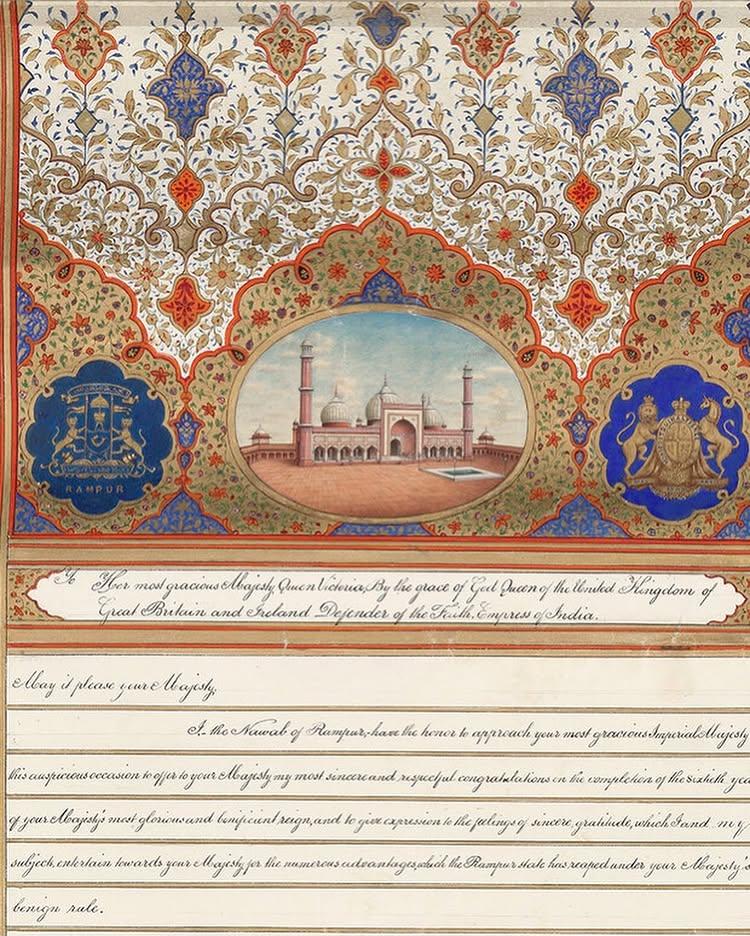 RAMPUR
To Her most gracious Majesty, Queen Victoria, By the grace of God Queen of the United Kingdom of
Great Britain and Ireland Defender of the Faith, Empress of India.
May it please your Majesty,
I, the Nawab of Rampur, have the honor to approach your most gracious Imperial Majesty
this auspicious occasion to offer to your Majesty my most sincere and respectful congratulations on the completion of the sixtieth yea
of your Majesty's most glorious and benificient reign, and to give expression to the feelings of sincere gratitude, which I and my
subject, entertain towards your Majesty for the numerous advantages, which the Rampur state has reaped under your Majesty's
benign rule.